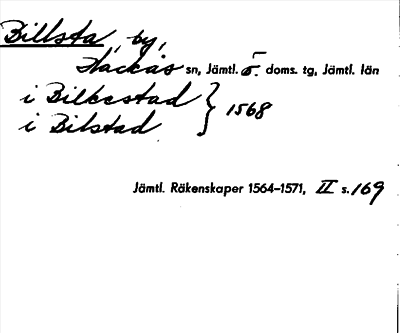 Billsta, by,
Hackås sn, Jämtl. ö. doms. tg, Jämtl. län
i Bilkestad } 1568
i Bilstad
Jämtl. Räkenskaper 1564–1571, II s. 169